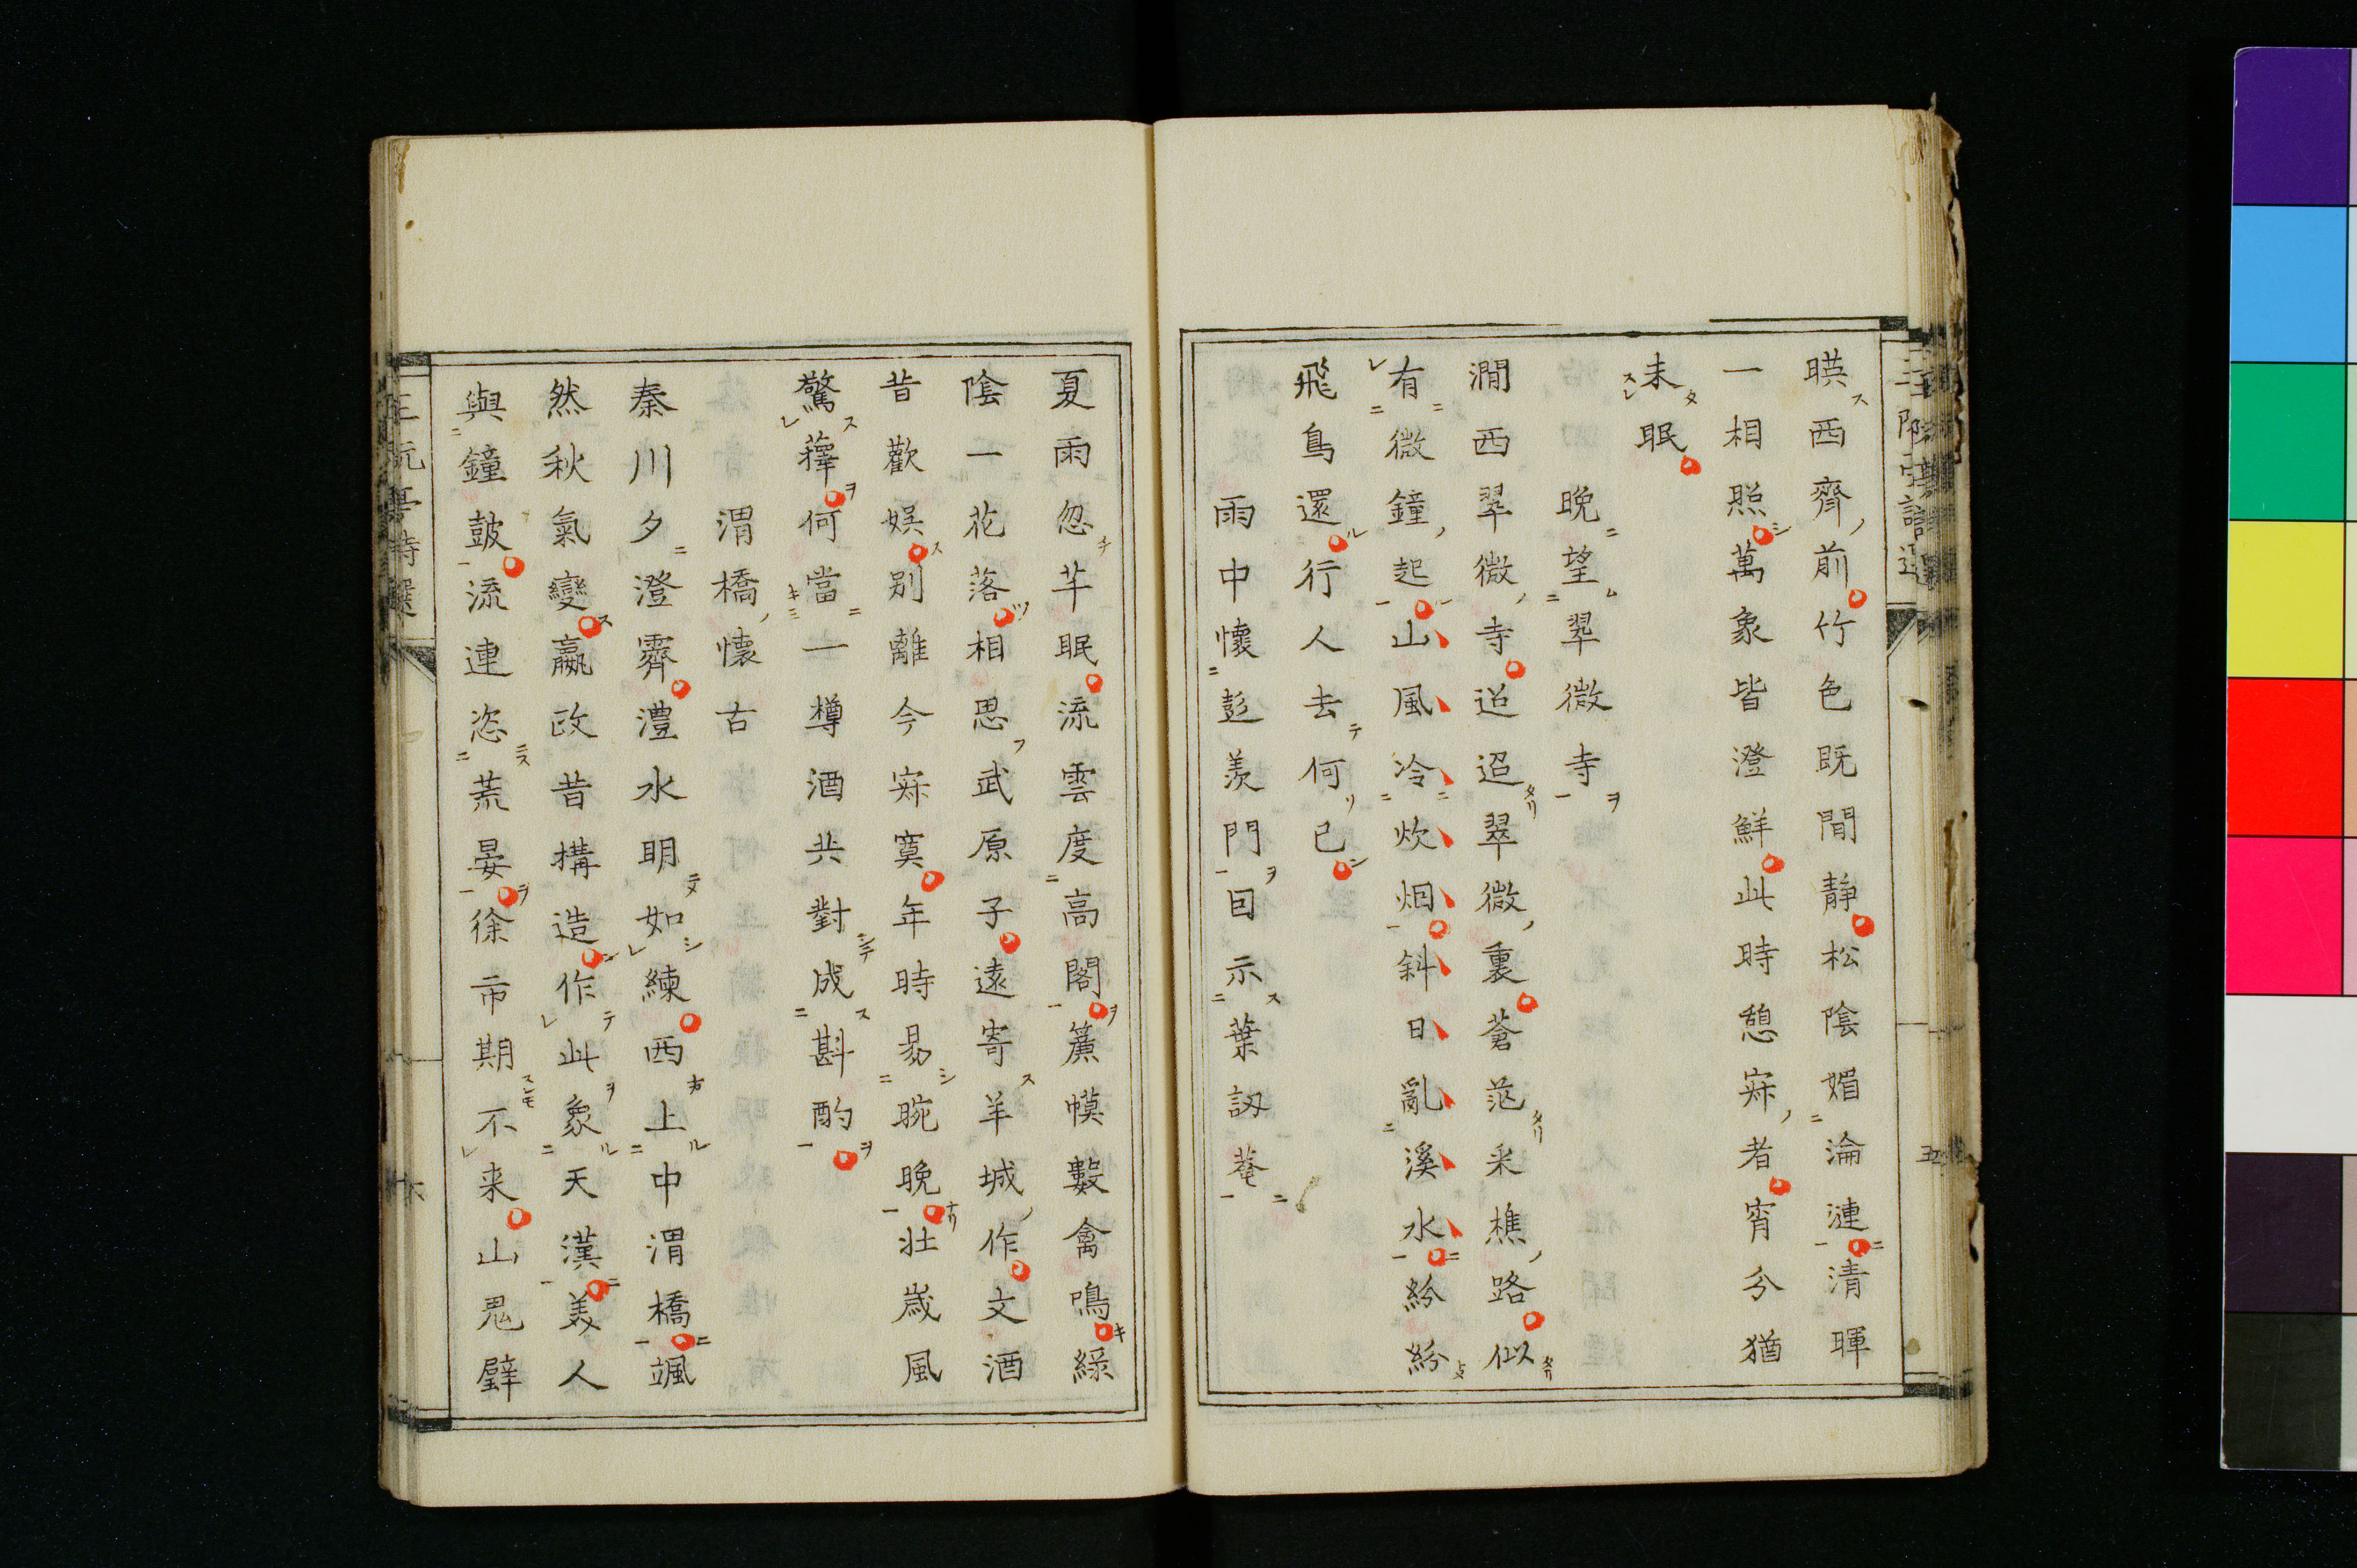 暎西齊前竹色既閒静松陰媚淪漣清暉
一相照萬象皆澄鮮此時憩寂者宵分猶
未眠
晩望翠微寺
澗西翠微寺迢迢翠微裏蒼茫采樵路似
有微鐘起山風冷炊烟斜日亂溪水紛紛
飛鳥還行人去何已
雨中懷彭羨門因示葉訒菴
夏雨忽芊眠流雲度高閣簾幙數禽鳴緑
陰一花落相思武原子遠寄羊城作文酒
昔歡娯別離今寂寞年時易晼晩壮歳風
驚蘀何當一樽酒共對成斟酌
渭橋懷古
秦川夕澄霽灃水明如練西上中渭橋颯
然秋氣變嬴政昔搆造作此象天漢美人
與鐘鼓流連恣荒晏徐市期不来山鬼璧
王阮亭詩選
五
六